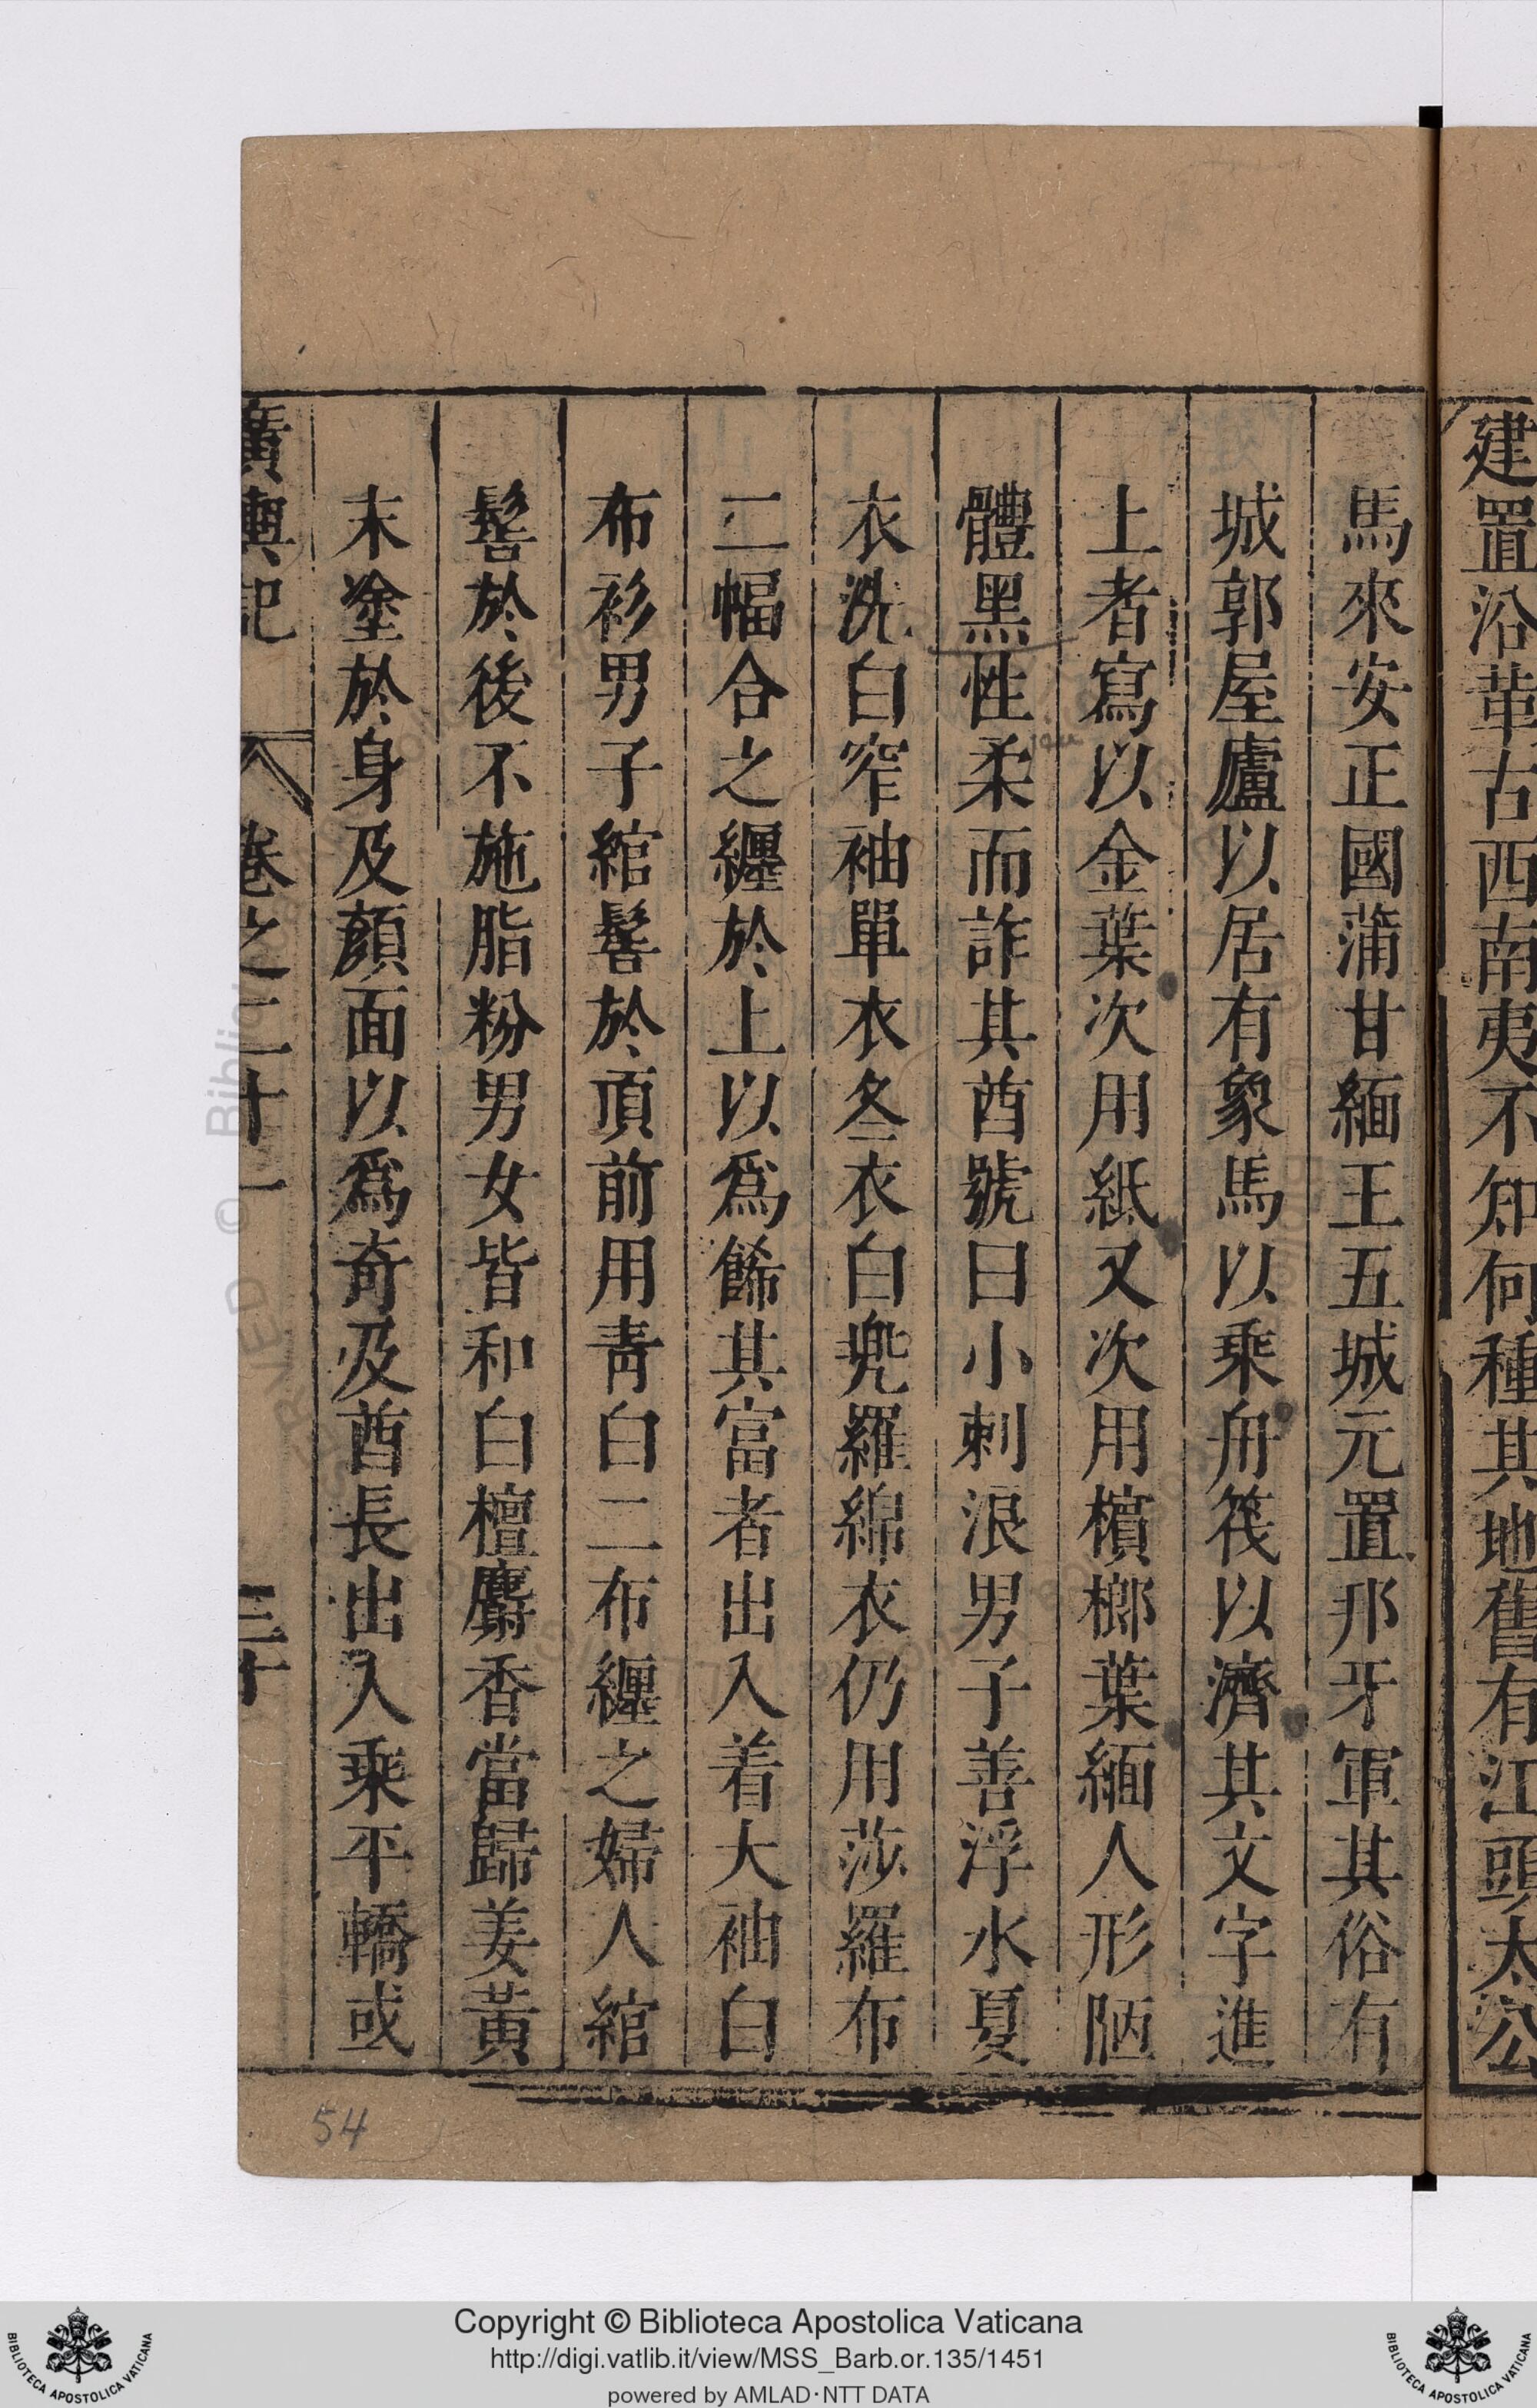 建置沿革古西南夷不知何種其地舊有江頭太公
馬來安正國蒲甘緬王五城元置邦牙軍其俗有
城郭屋廬以居有象馬以乘舟筏以濟其文字進
上者寫以金葉次用紙又次用檳榔葉緬人形陋
體黑性柔而詐其酋號曰小刺浪男子善浮水夏
衣洗白窄袖單衣冬衣白兠羅綿衣仍用莎羅布
二幅合之纏於上以爲餙其富者出入着大袖白
布衫男子綰髻於頂前用青白二布纏之婦人綰
髻於後不施脂粉男女皆和白檀麝香當歸姜黃
末塗於身及顏面以爲奇及酋長出入乘平轎或
廣輿記 卷之二十一 三十
54
Copyright © Biblioteca Apostolica Vaticana
http://digi.vatlib.it/view/MSS_Barb.or.135/1451
powered by AMLAD·NTT DATA
BIBLIOTECA APOSTOLICA VATICANA
BIBLIOTECA APOSTOLICA VATICANA